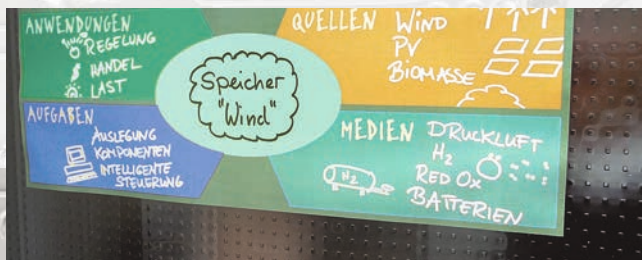 ANWENDUNGEN
REGELUNG
HANDEL
LAST
QUELLEN
WIND
PV
BIOMASSE
Speicher
"Wind"
AUFGABEN
AUSLEGUNG
KOMPONENTEN
INTELLIGENTE
STEUERUNG
MEDIEN
DRUCKLUFT
H2
RED OX
BATTERIEN
H2